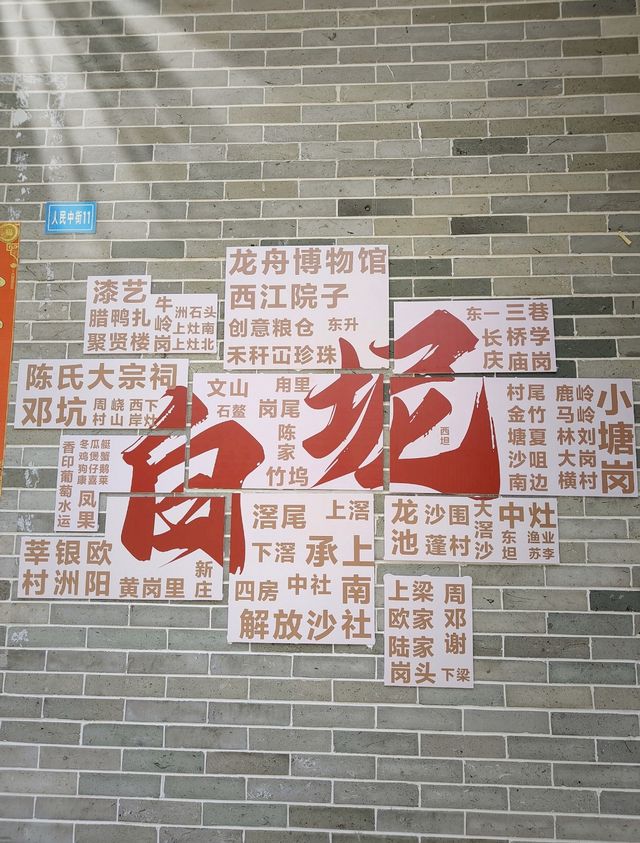 人民中街11
龙舟博物馆
西江院子
创意粮仓 东升
禾秆冚珍珠
漆艺
腊鸭扎
聚贤楼
牛岭岗
洲石头
上灶南
上灶北
东一三巷
长桥学
庆庙岗
陈氏大宗祠
邓坑
周村
峣山
西岸
下灶
文山
石鳌
甪里
岗尾
陈家
竹坞
白坭
西坦
村尾
金竹
塘夏
沙咀
南边
鹿岭
马岭
林刘
大岗
横村
小塘岗
香印葡萄水运
冬瓜艇
鸡煲蟹
狗仔鹅
康喜莱
凤果
莘银欧
村洲阳
黄岗里
新庄
滘尾
上滘
下滘
承上
四房
中社
南
解放沙社
龙沙围
池蓬村
大滘沙
中灶
东坦
渔业
苏李
上梁
欧家
陆家
岗头
周邓谢
下梁